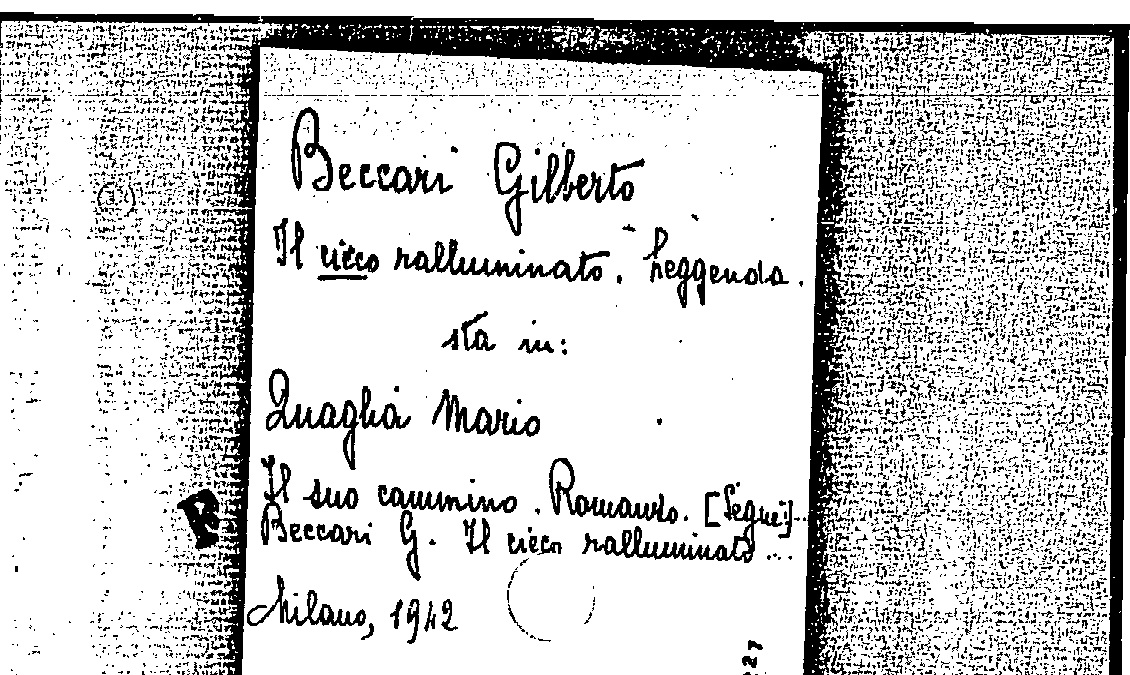 Beccari Gilberto
Il cieco ralluminato. Leggenda.
sta in:
Quaglia Mario
Il suo cammino. Romanzo. [Segue:]..
Beccari G. Il cieco ralluminato ...
Milano, 1942
R
27